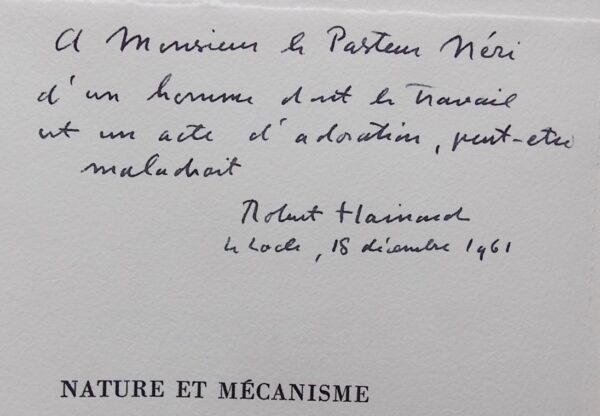 A Monsieur le Pasteur Néri
d'un homme dont le travail
est un acte d'adoration, peut-être
maladroit
Robert Hainard
Le Locle, 18 décembre 1961
NATURE ET MÉCANISME